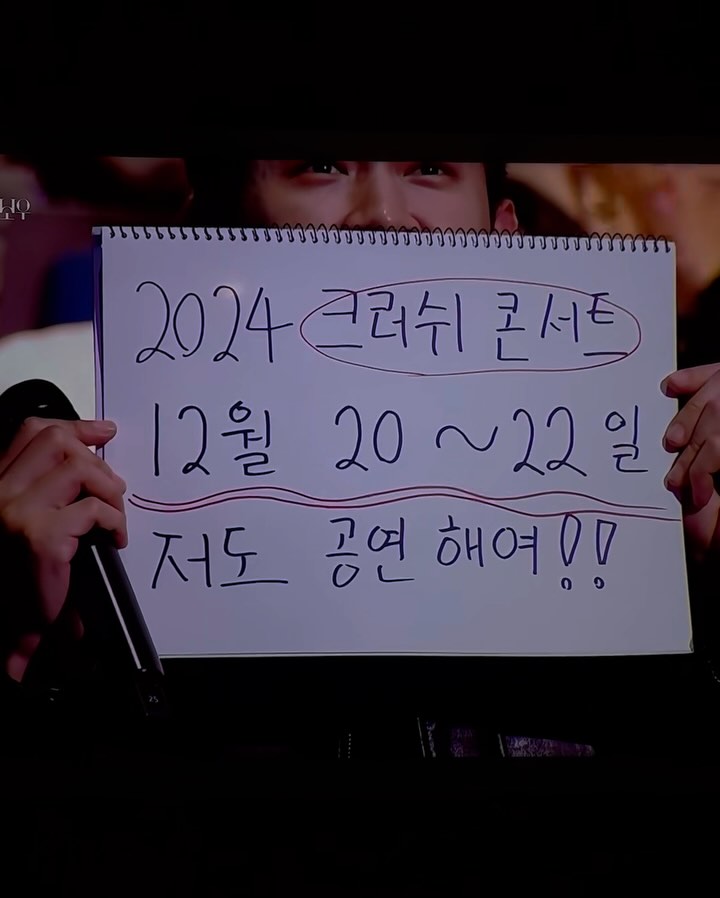 2024 크러쉬 콘서트
12월 20~22일
저도 공연 해여!!
25